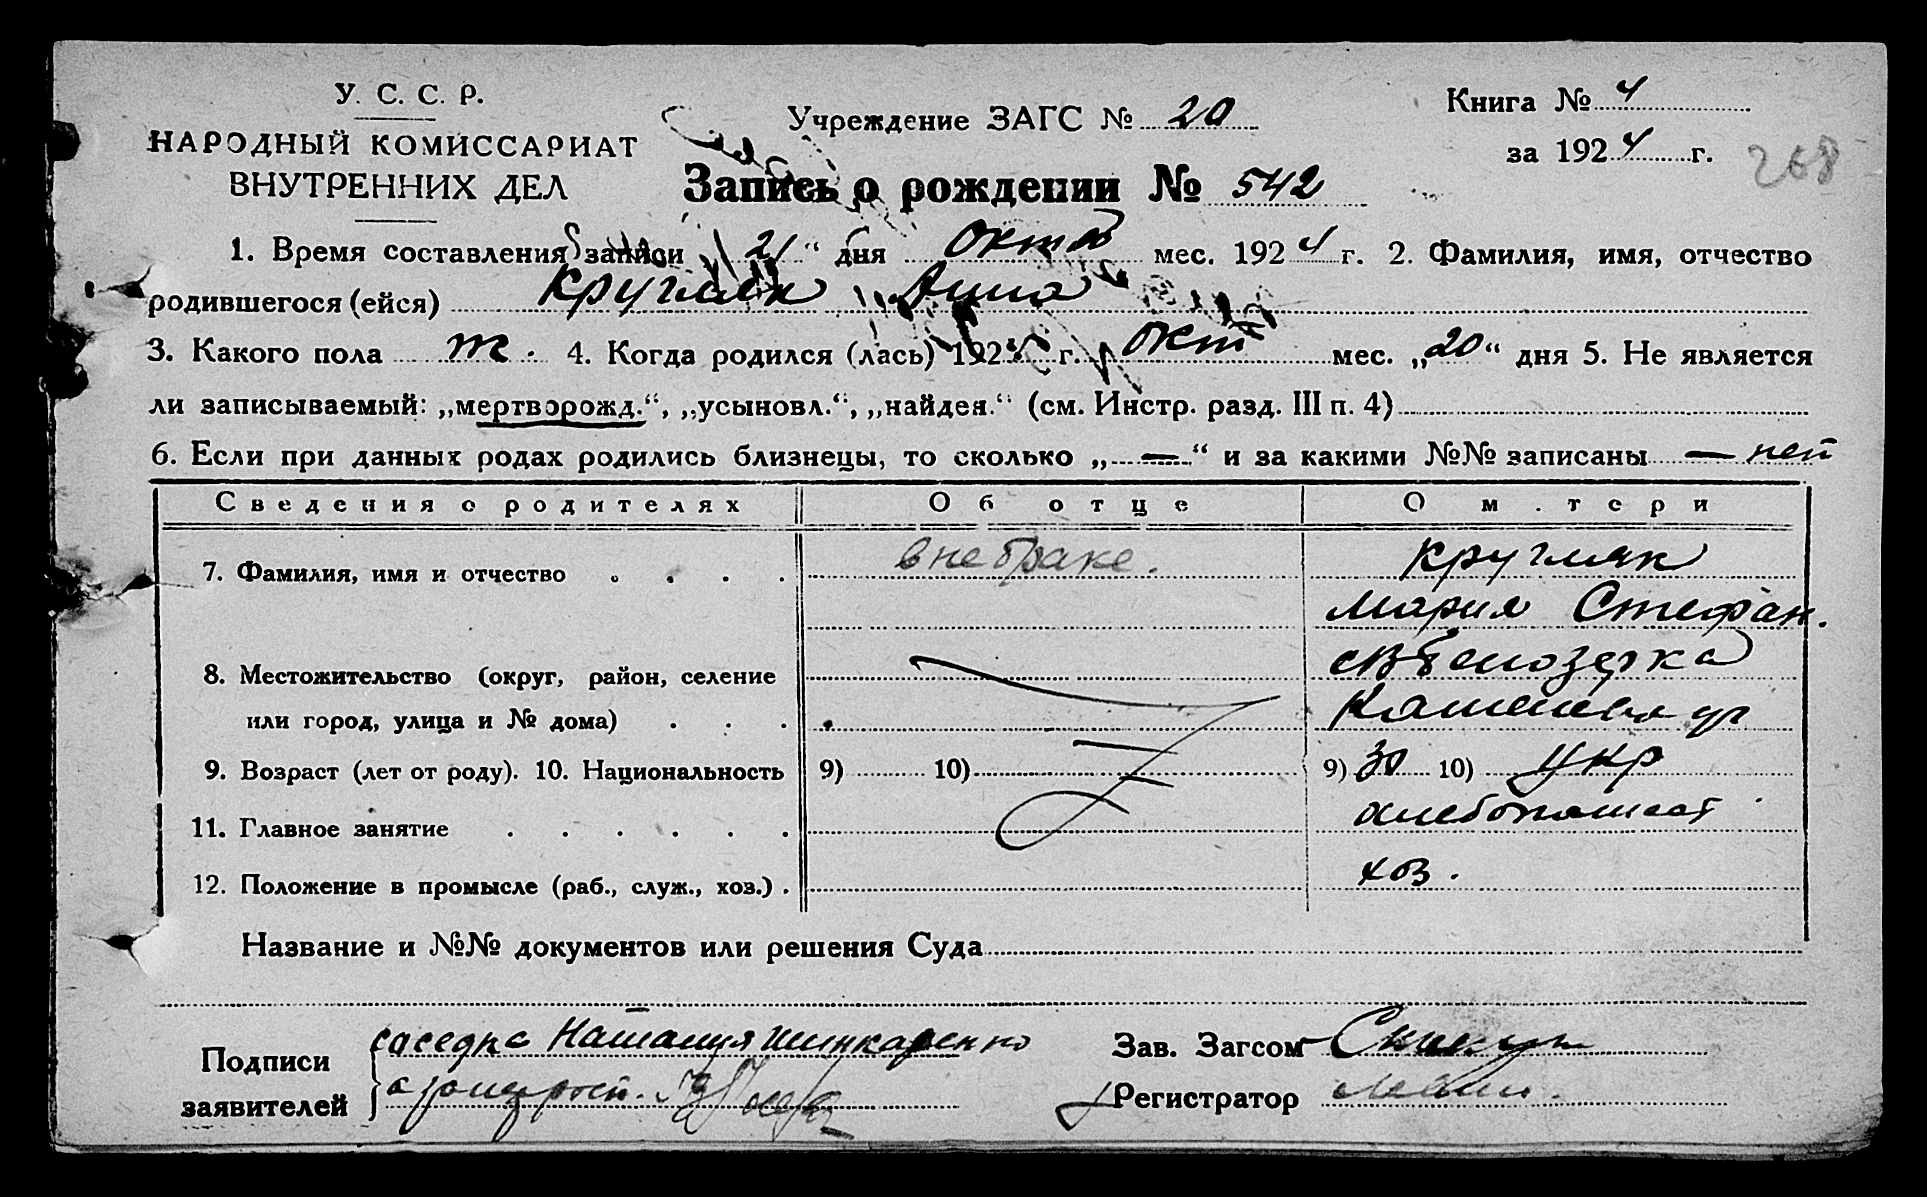 У. С. С. Р.
НАРОДНЫЙ КОМИССАРИАТ
ВНУТРЕННИХ ДЕЛ
Учреждение ЗАГС № 20
Книга № 4
за 1924 г.
268
Запись о рождении № 542
1. Время составления записи „21“ дня октяб мес. 1924 г. 2. Фамилия, имя, отчество
родившегося (ейся) Кругляк Анна
3. Какого пола ж. 4. Когда родился (лась) 1924 г. окт мес. „20“ дня 5. Не является
ли записываемый: „мертворожд.“, „усыновл.“, „найден.“ (см. Инстр. разд. III п. 4)
6. Если при данных родах родились близнецы, то сколько „—“ и за какими №№ записаны — нет
Сведения о родителях Об отце О м.тери
7. Фамилия, имя и отчество . . . . вне браке. Кругляк
Мария Стефан.
8. Местожительство (округ, район, селение с Белозерка
или город, улица и № дома) . . .
9. Возраст (лет от роду). 10. Национальность 9) 10) 9) 30 10) укр
11. Главное занятие . . . . . . хлебопашест
12. Положение в промысле (раб., служ., хоз.) . хоз.
Название и №№ документов или решения Суда
Подписи заявителей
соседка Наталия Шинкаренко
Зав. Загсом
Регистратор